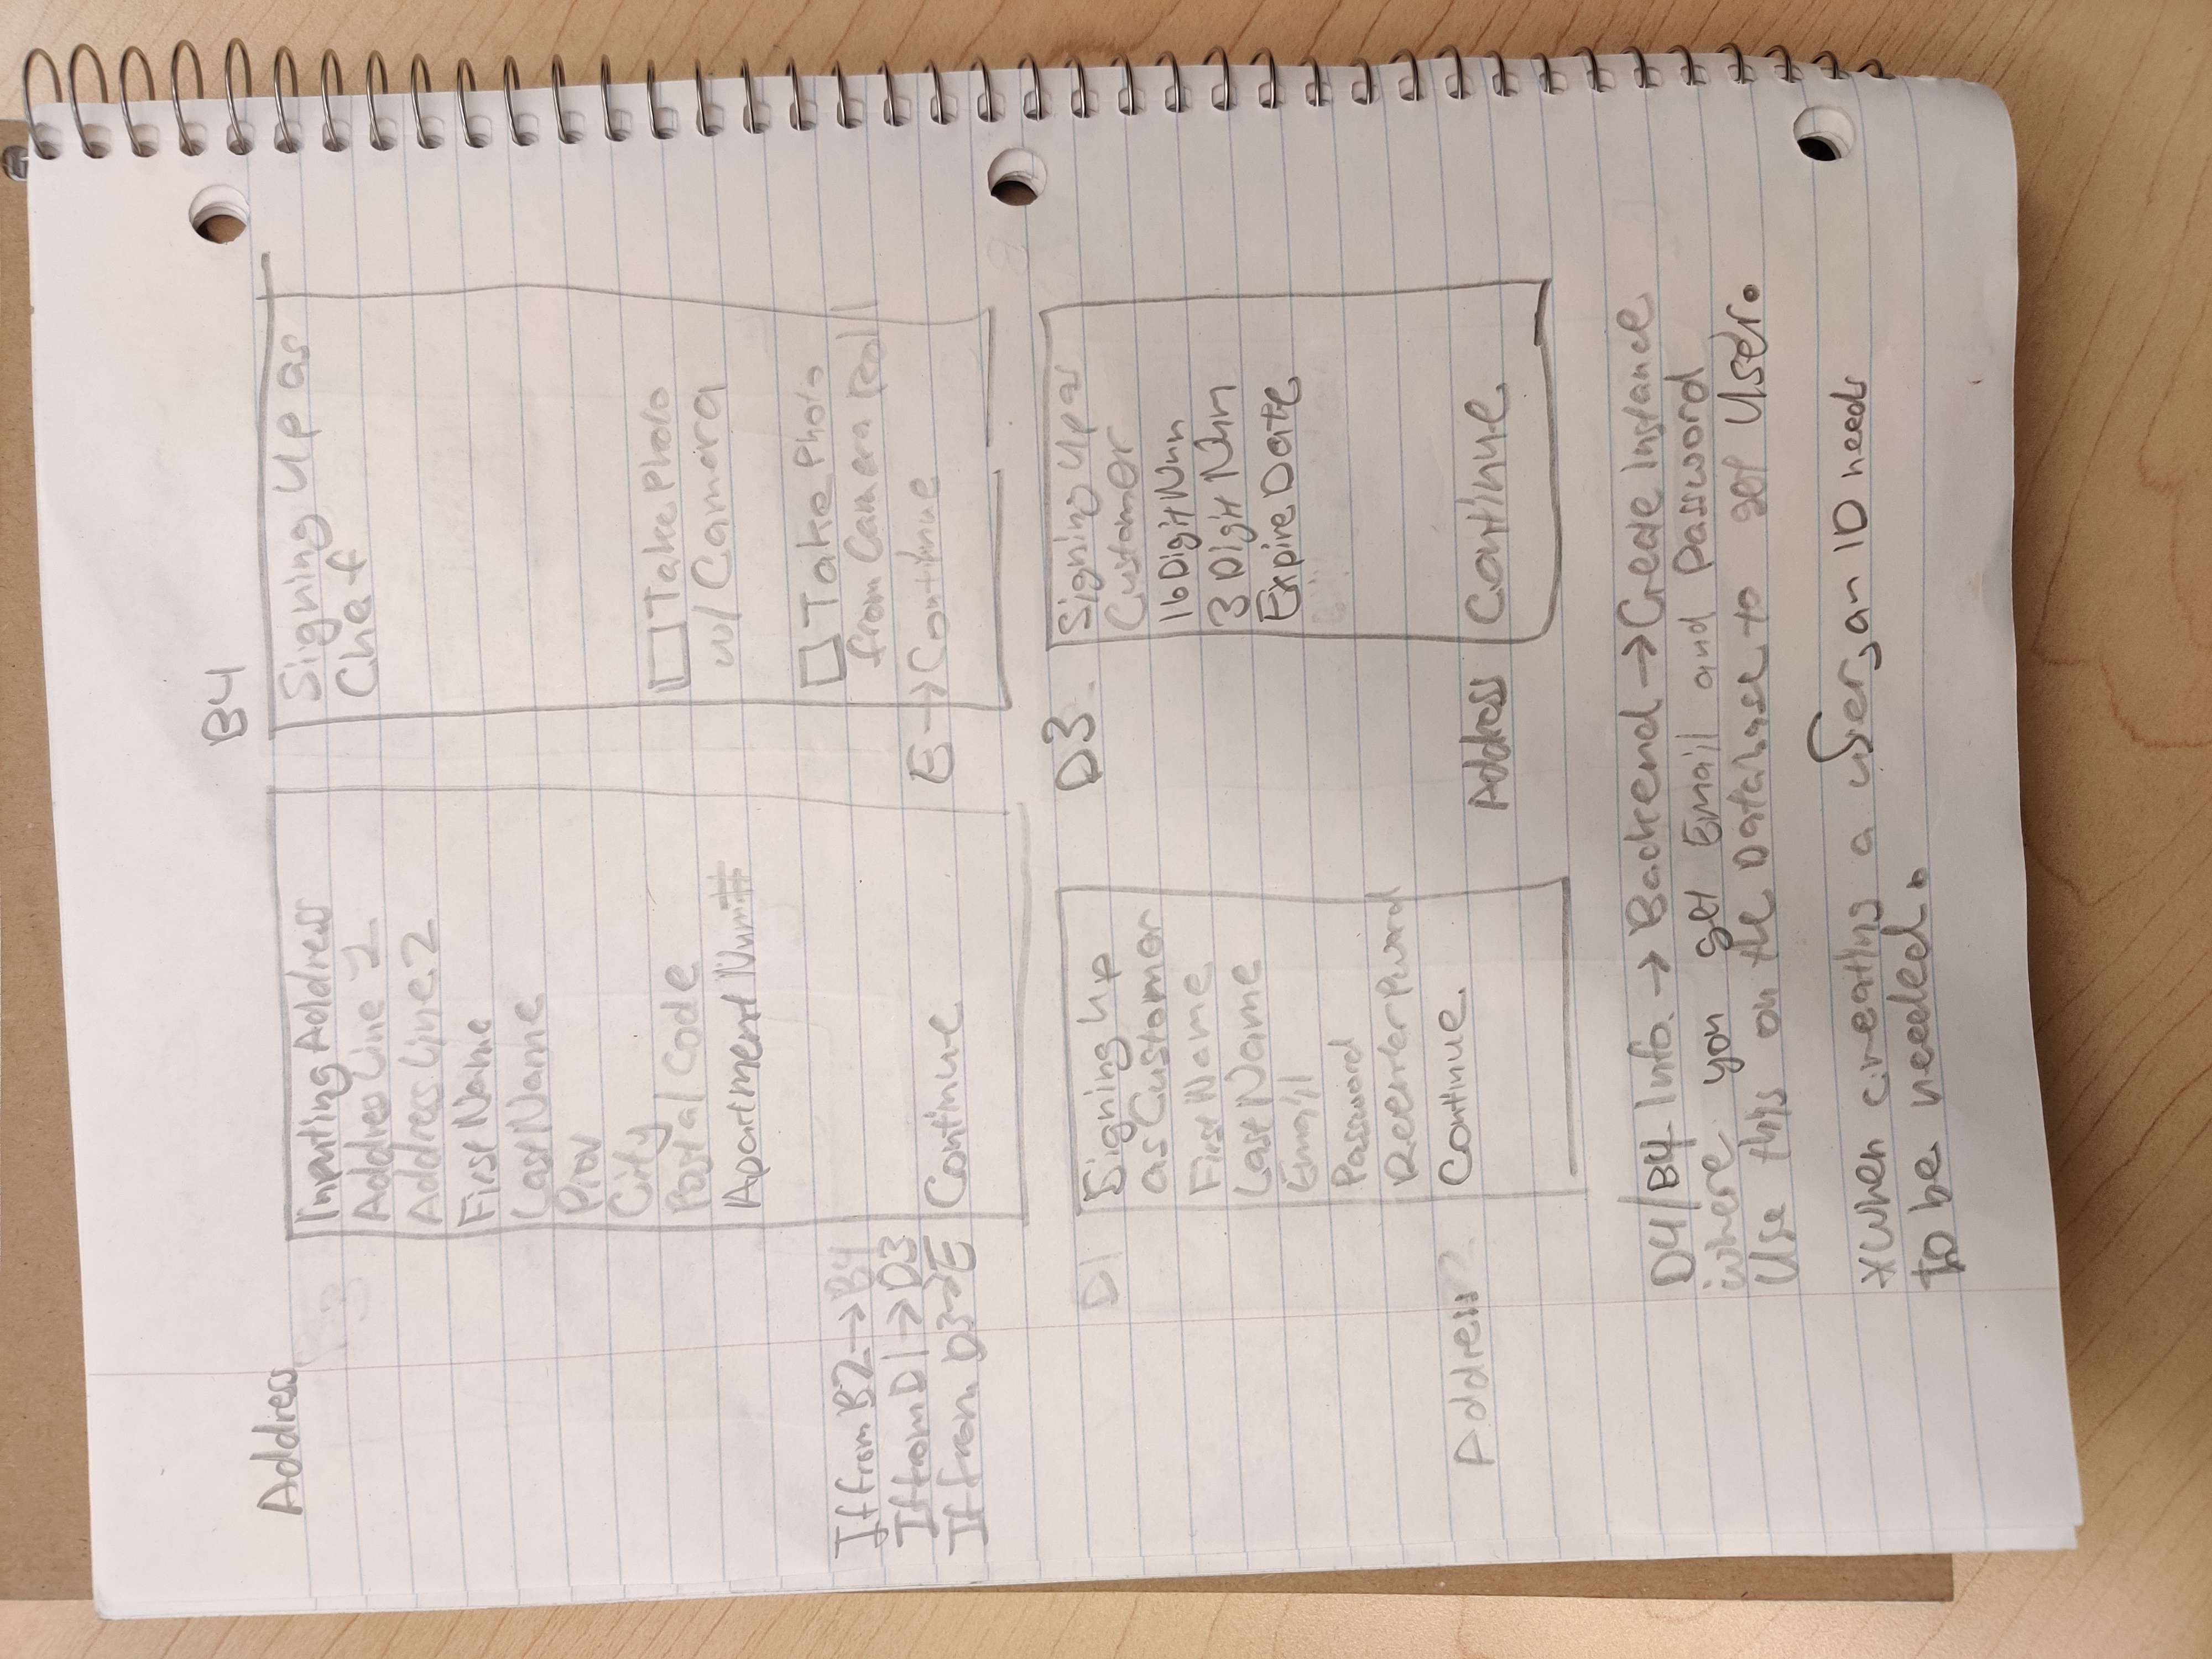 Address
Inputting Address
Address Line 1
Address Line 2
First Name
Last Name
Prov
City
Postal Code
Apartment Num#
If from B2 → B4
If from D1 → D3
If from D3 → E
Continue
B4
Signing Up as
Chef
Take Photo
w/ Camera
Take Photo
from Camera Roll
E → Continue
D1
Signing Up
as Customer
First Name
Last Name
Email
Password
Reenter Pword
Continue
Address
D3
Signing Up as
Customer
16 Digit Num
3 Digit Num
Expire Date
Address
Continue
D4/B4 Info. → Backend → Create Instance
where you get Email and Password
Use this on the Database to get User.
*When creating a User, an ID needs
to be needed.